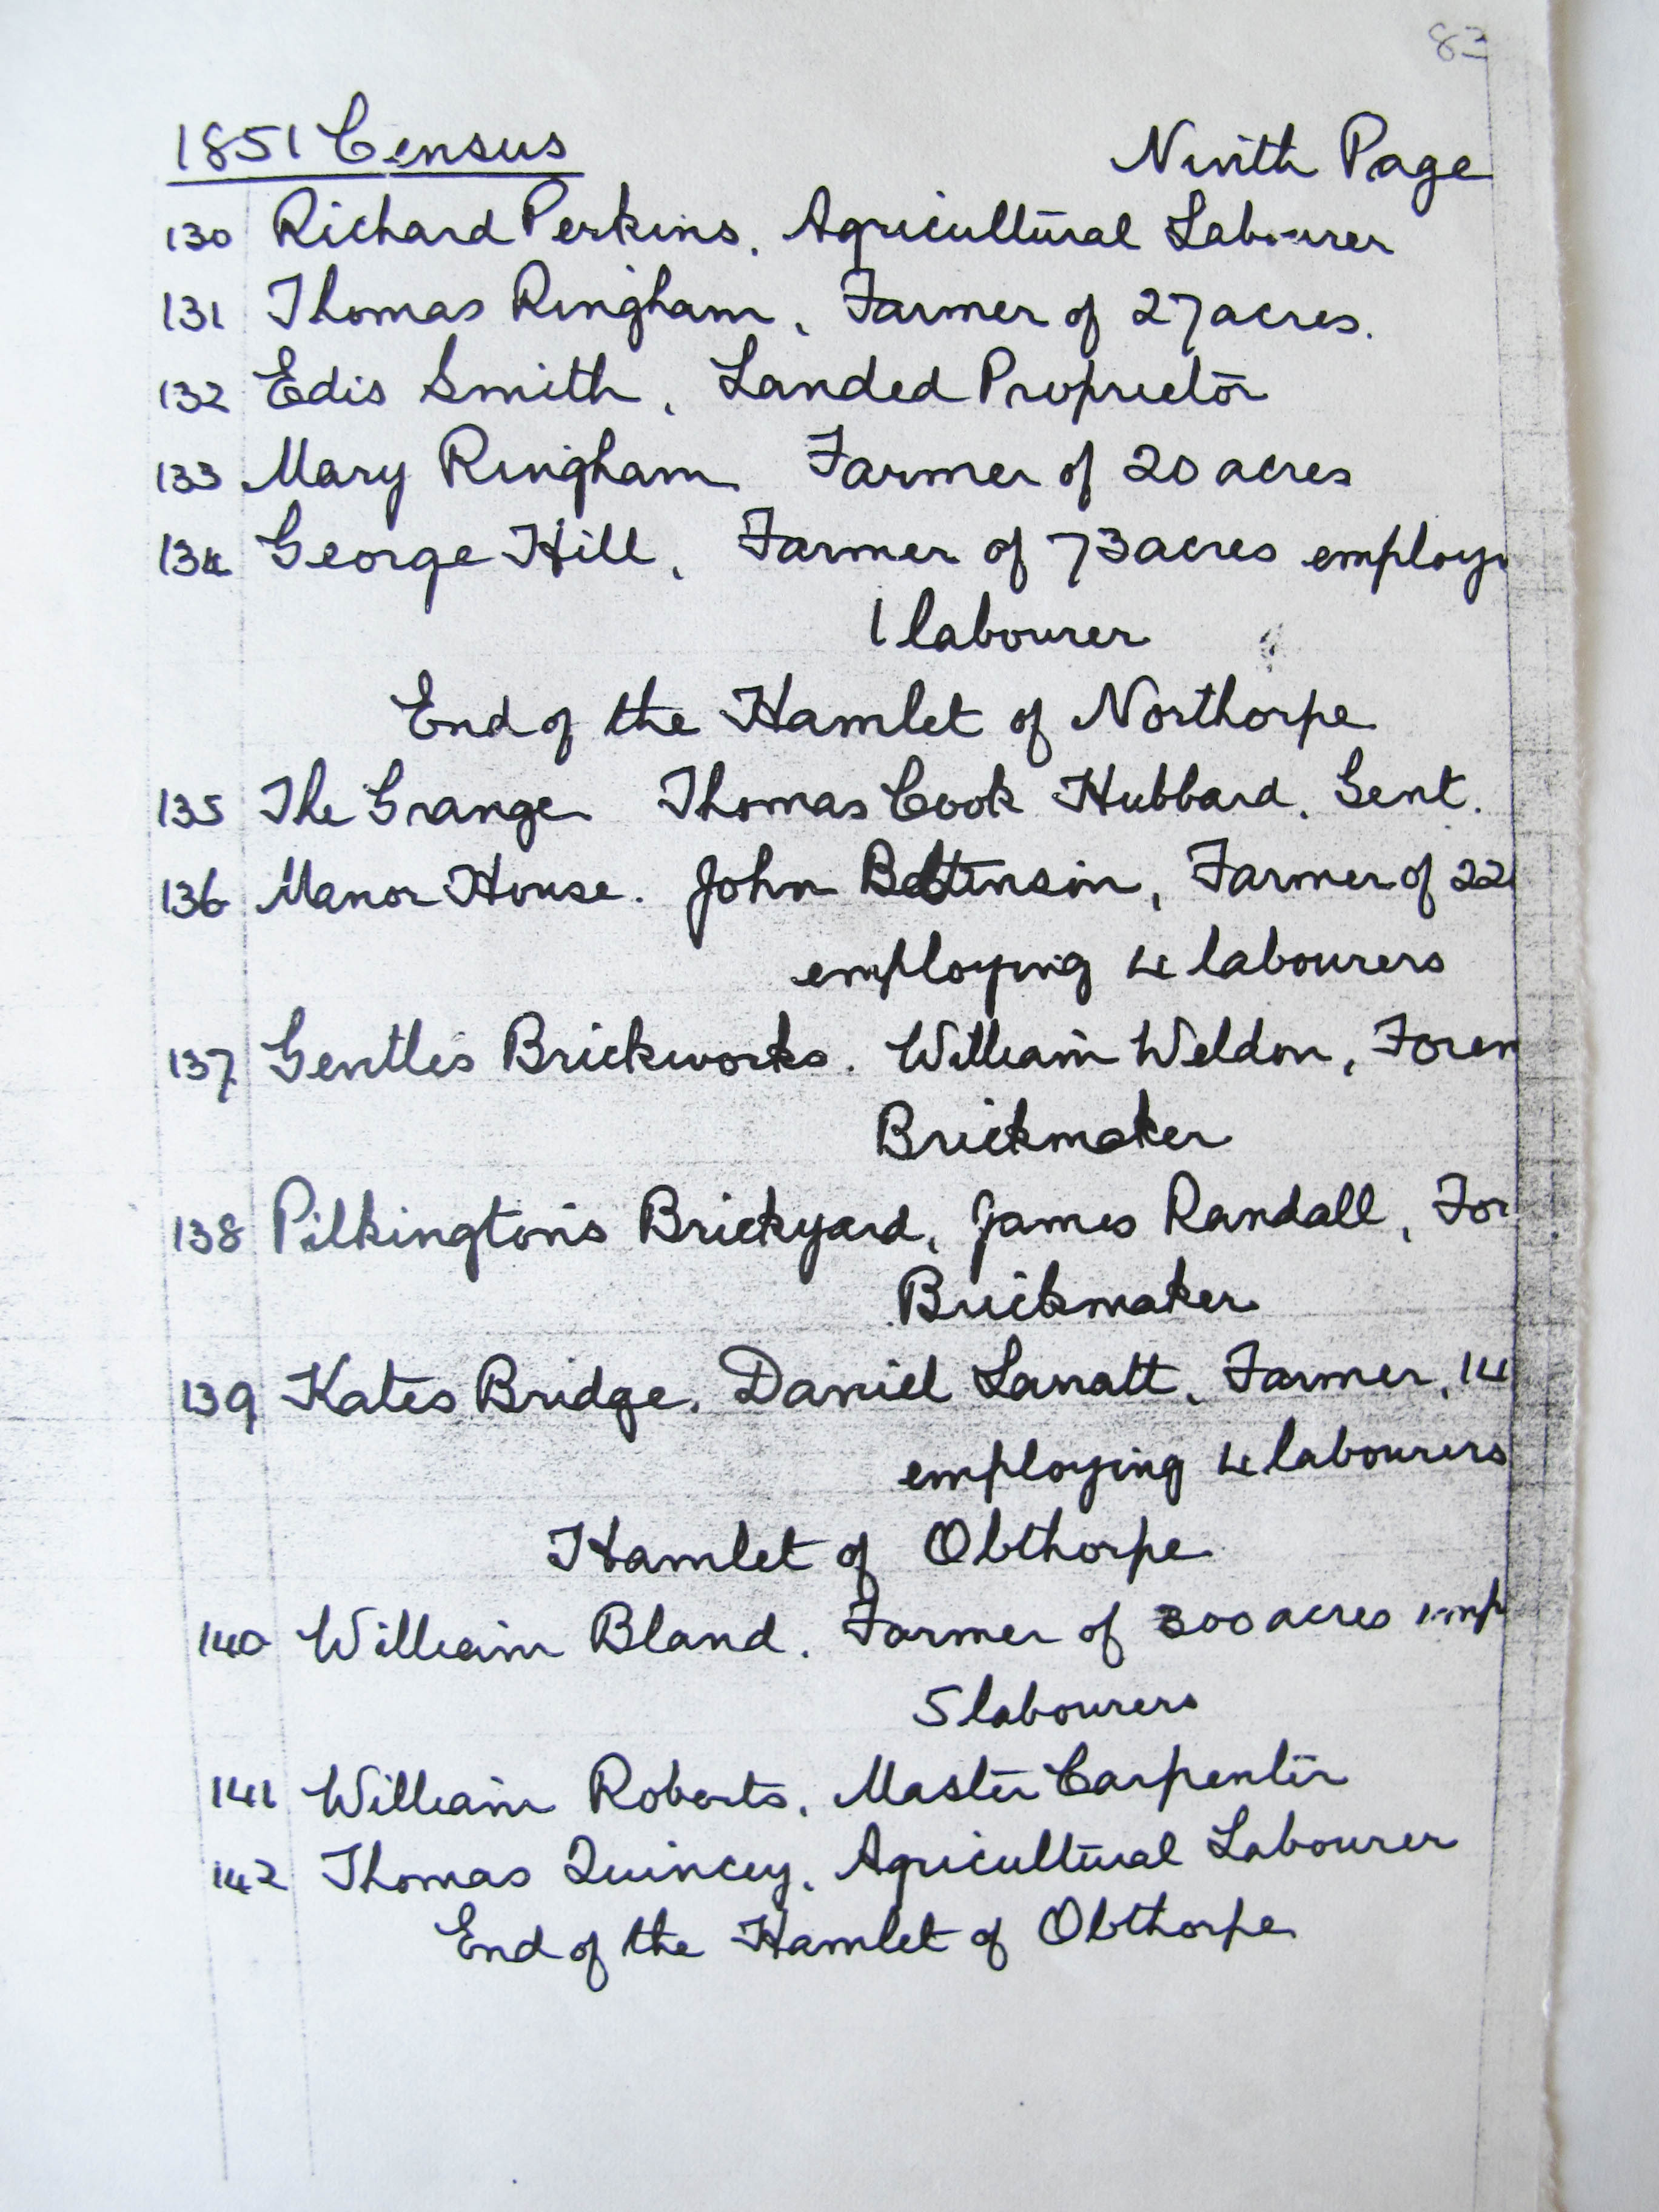 83
1851 Census Ninth Page
130 Richard Perkins. Agricultural Labourer
131 Thomas Ringham, Farmer of 27 acres.
132 Edis Smith, Landed Proprietor
133 Mary Ringham Farmer of 20 acres
134 George Hill, Farmer of 73 acres employ
1 labourer
End of the Hamlet of Northorpe
135 The Grange Thomas Cook Hubbard. Gent.
136 Manor House. John Bettinson, Farmer of 22
employing 4 labourers
137 Gentles Brickworks. William Weldon, Forem
Brickmaker
138 Pilkington's Brickyard, James Randall, For
Brickmaker
139 Kates Bridge. Daniel Lanatt, Farmer, 14
employing 4 labourers
Hamlet of Obthorpe
140 William Bland. Farmer of 300 acres emp
5 labourers
141 William Roberts, Master Carpenter
142 Thomas Quincey, Agricultural Labourer
End of the Hamlet of Obthorpe